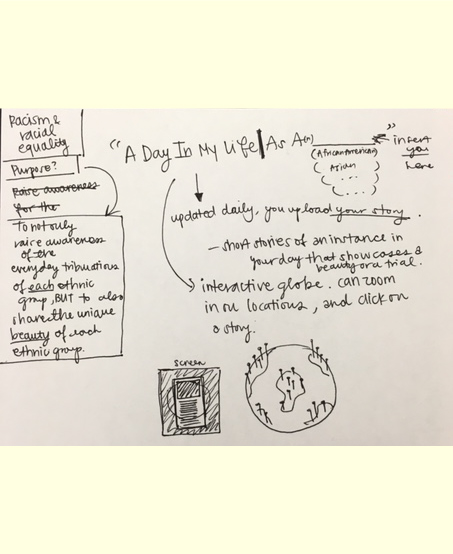 Racism &
racial
equality
Purpose?
Raise awareness
for the
To not only
raise awareness
of the
everyday tribulations
of each ethnic
group, BUT to also
share the unique
beauty of each
ethnic group.
"A Day In My Life | As A(n) ________"
(African American)
Asian
. . .
. . .
insert
you
here
updated daily, you upload your story.
- short stories of an instance in
your day that showcases a
beauty or a trial.
interactive globe. can zoom
in on locations, and click on
a story.
screen